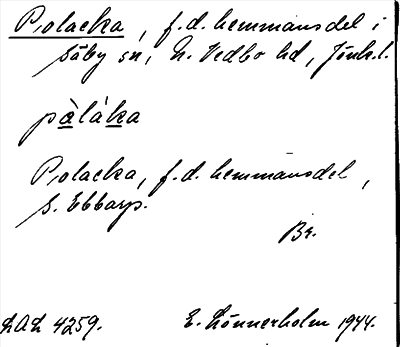 Polacka, f.d. hemmansdel i
Säby sn, N. Vedbo hd, Jönk.l.
pàláka
Polacka, f.d. hemmansdel,
S. Ebbarp.
Be.
LAL 4259. E. Lönnerholm 1944.